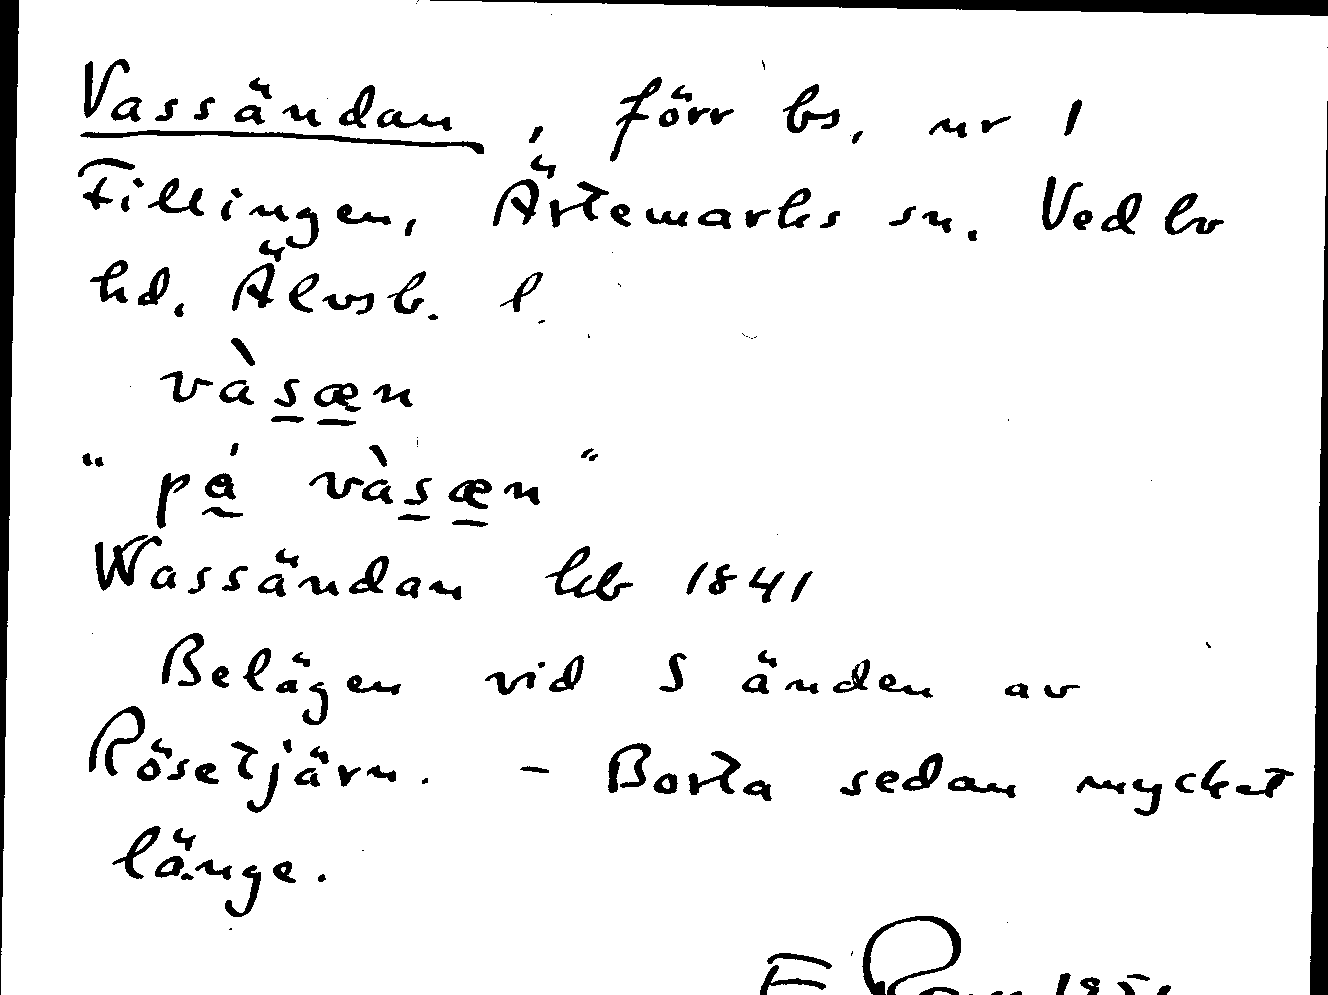 Vassändan, förr bs, nr 1
Fillingen, Ärtemarks sn. Vedbo
hd. Älvsb. l.
vàsæn
"på vàsæn"
Wassändan hb 1841
Belägen vid S änden av
Rösetjärn. - Borta sedan mycket
länge.